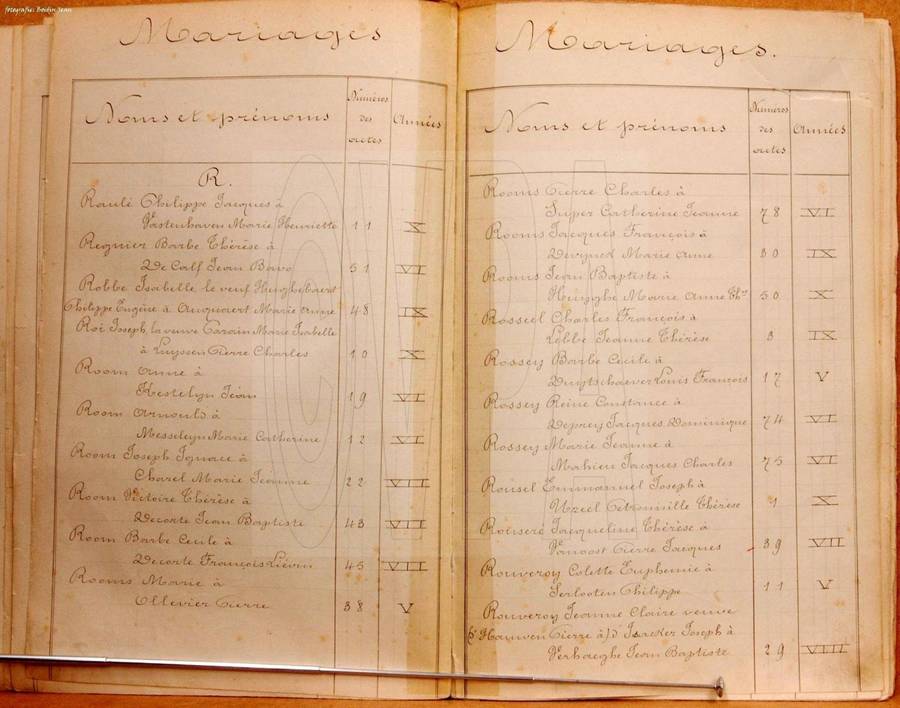 fotografie: Boidin Jean
Mariages
Noms et prénoms
Numéros des actes
Années
R.
Raulé Philippe Jacques à
Vastenhaven Marie Henriette 11 X
Regnier Barbe Thérèse à
De Calf Jean Bavo 51 VI
Robbe Isabelle le veuf
Philippe Eugène à Marie Anne 48 IX
Roi Joseph, la veuve Marie Isabelle
à Luyssen Pierre Charles 10 X
Room Anne à
Kestelyn Jean 19 VI
Room Arnould à
Messeleyn Marie Catherine 12 VI
Room Joseph Ignace à
Charel Marie Jeanne 22 VII
Room Victoire Thérèse à
Decorte Jean Baptiste 43 VII
Room Barbe Cecile à
Decorte François Liévin 45 VIII
Rooms Marie à
Ollevier Pierre 38 V
Mariages.
Noms et prénoms
Numéros des actes
Années
Rooms Pierre Charles à
Super Catherine Jeanne 78 VI
Rooms Jacques François à
Marie Anne 80 IX
Rooms Jean Baptiste à
Huyghe Marie Anne Thse 50 X
Rosseel Charles François à
Lebbe Jeanne Thérèse 3 IX
Rossey Barbe Cecile à
Duytschaever Louis François 17 V
Rossey Reine Constance à
Deprey Jacques Dominique 74 VI
Rossey Marie Jeanne à
Mahieu Jacques Charles 75 VI
Rousel Emmanuel Joseph à
Petronille Thérèse 1 X
Rouseré Jacqueline Thérèse à
Vanoost Pierre Jacques 39 VII
Rouveroy Colette Euphemie à
Serlooten Philippe 11 V
Rouveroy Jeanne Claire veuve
Pierre à D'Isacker Joseph à
Verhaeghe Jean Baptiste 29 VIII